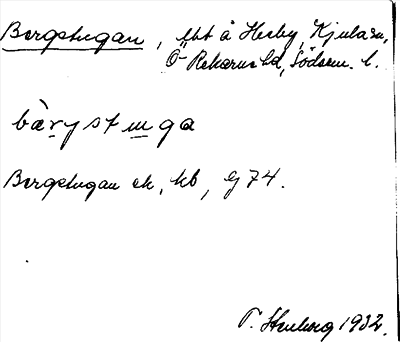 Bergstugan, lht å Hesby, Kjula sn,
Ö Rekarne hd, Söderm. l.
bàrystuga
Bergstugan ek, kb, Eg 74.
T. Stenberg 1932.